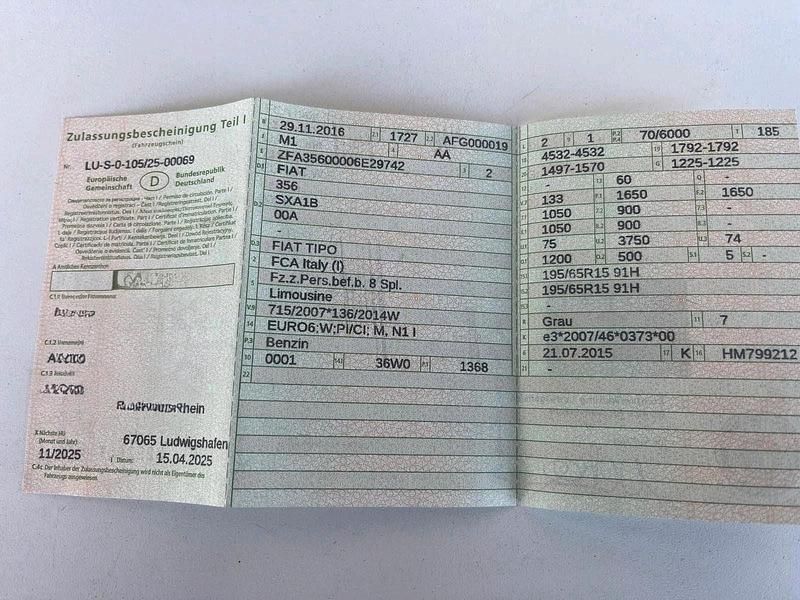 Zulassungsbescheinigung Teil I
(Fahrzeugschein)
Nr. LU-S-0-105/25-00069
Europäische Gemeinschaft
D
Bundesrepublik Deutschland
A Amtliches Kennzeichen
C.1.2 Vorname(n)
C.1.3 Anschrift
67065 Ludwigshafen
X Nächste HU
(Monat und Jahr)
11/2025
I Datum: 15.04.2025
C.4c Der Inhaber der Zulassungsbescheinigung wird nicht als Eigentümer des
Fahrzeugs ausgewiesen.
B 29.11.2016 2.1 1727 2.2 AFG000019
J M1 4 AA
E ZFA35600006E29742 3 2
D.1 FIAT
356
D.2 SXA1B
00A
-
D.3 FIAT TIPO
2 FCA Italy (I)
5 Fz.z.Pers.bef.b. 8 Spl.
Limousine
V.9 715/2007*136/2014W
14 EURO6;W;PI/CI; M, N1 I
P.3 Benzin
10 0001 14.1 36W0 P.1 1368
22
L 2 9 1 P.2 P.4 70/6000 T 185
18 4532-4532 19 1792-1792
20 1497-1570 G 1225-1225
12 - 13 60 Q -
V.7 133 F.1 1650 F.2 1650
7.1 1050 7.2 900 7.3 -
8.1 1050 8.2 900 8.3 -
U.1 75 U.2 3750 U.3 74
O.1 1200 O.2 500 S.1 5 S.2 -
15.1 195/65R15 91H
15.2 195/65R15 91H
15.3 -
R Grau 11 7
K e3*2007/46*0373*00
6 21.07.2015 17 K 16 HM799212
21 -